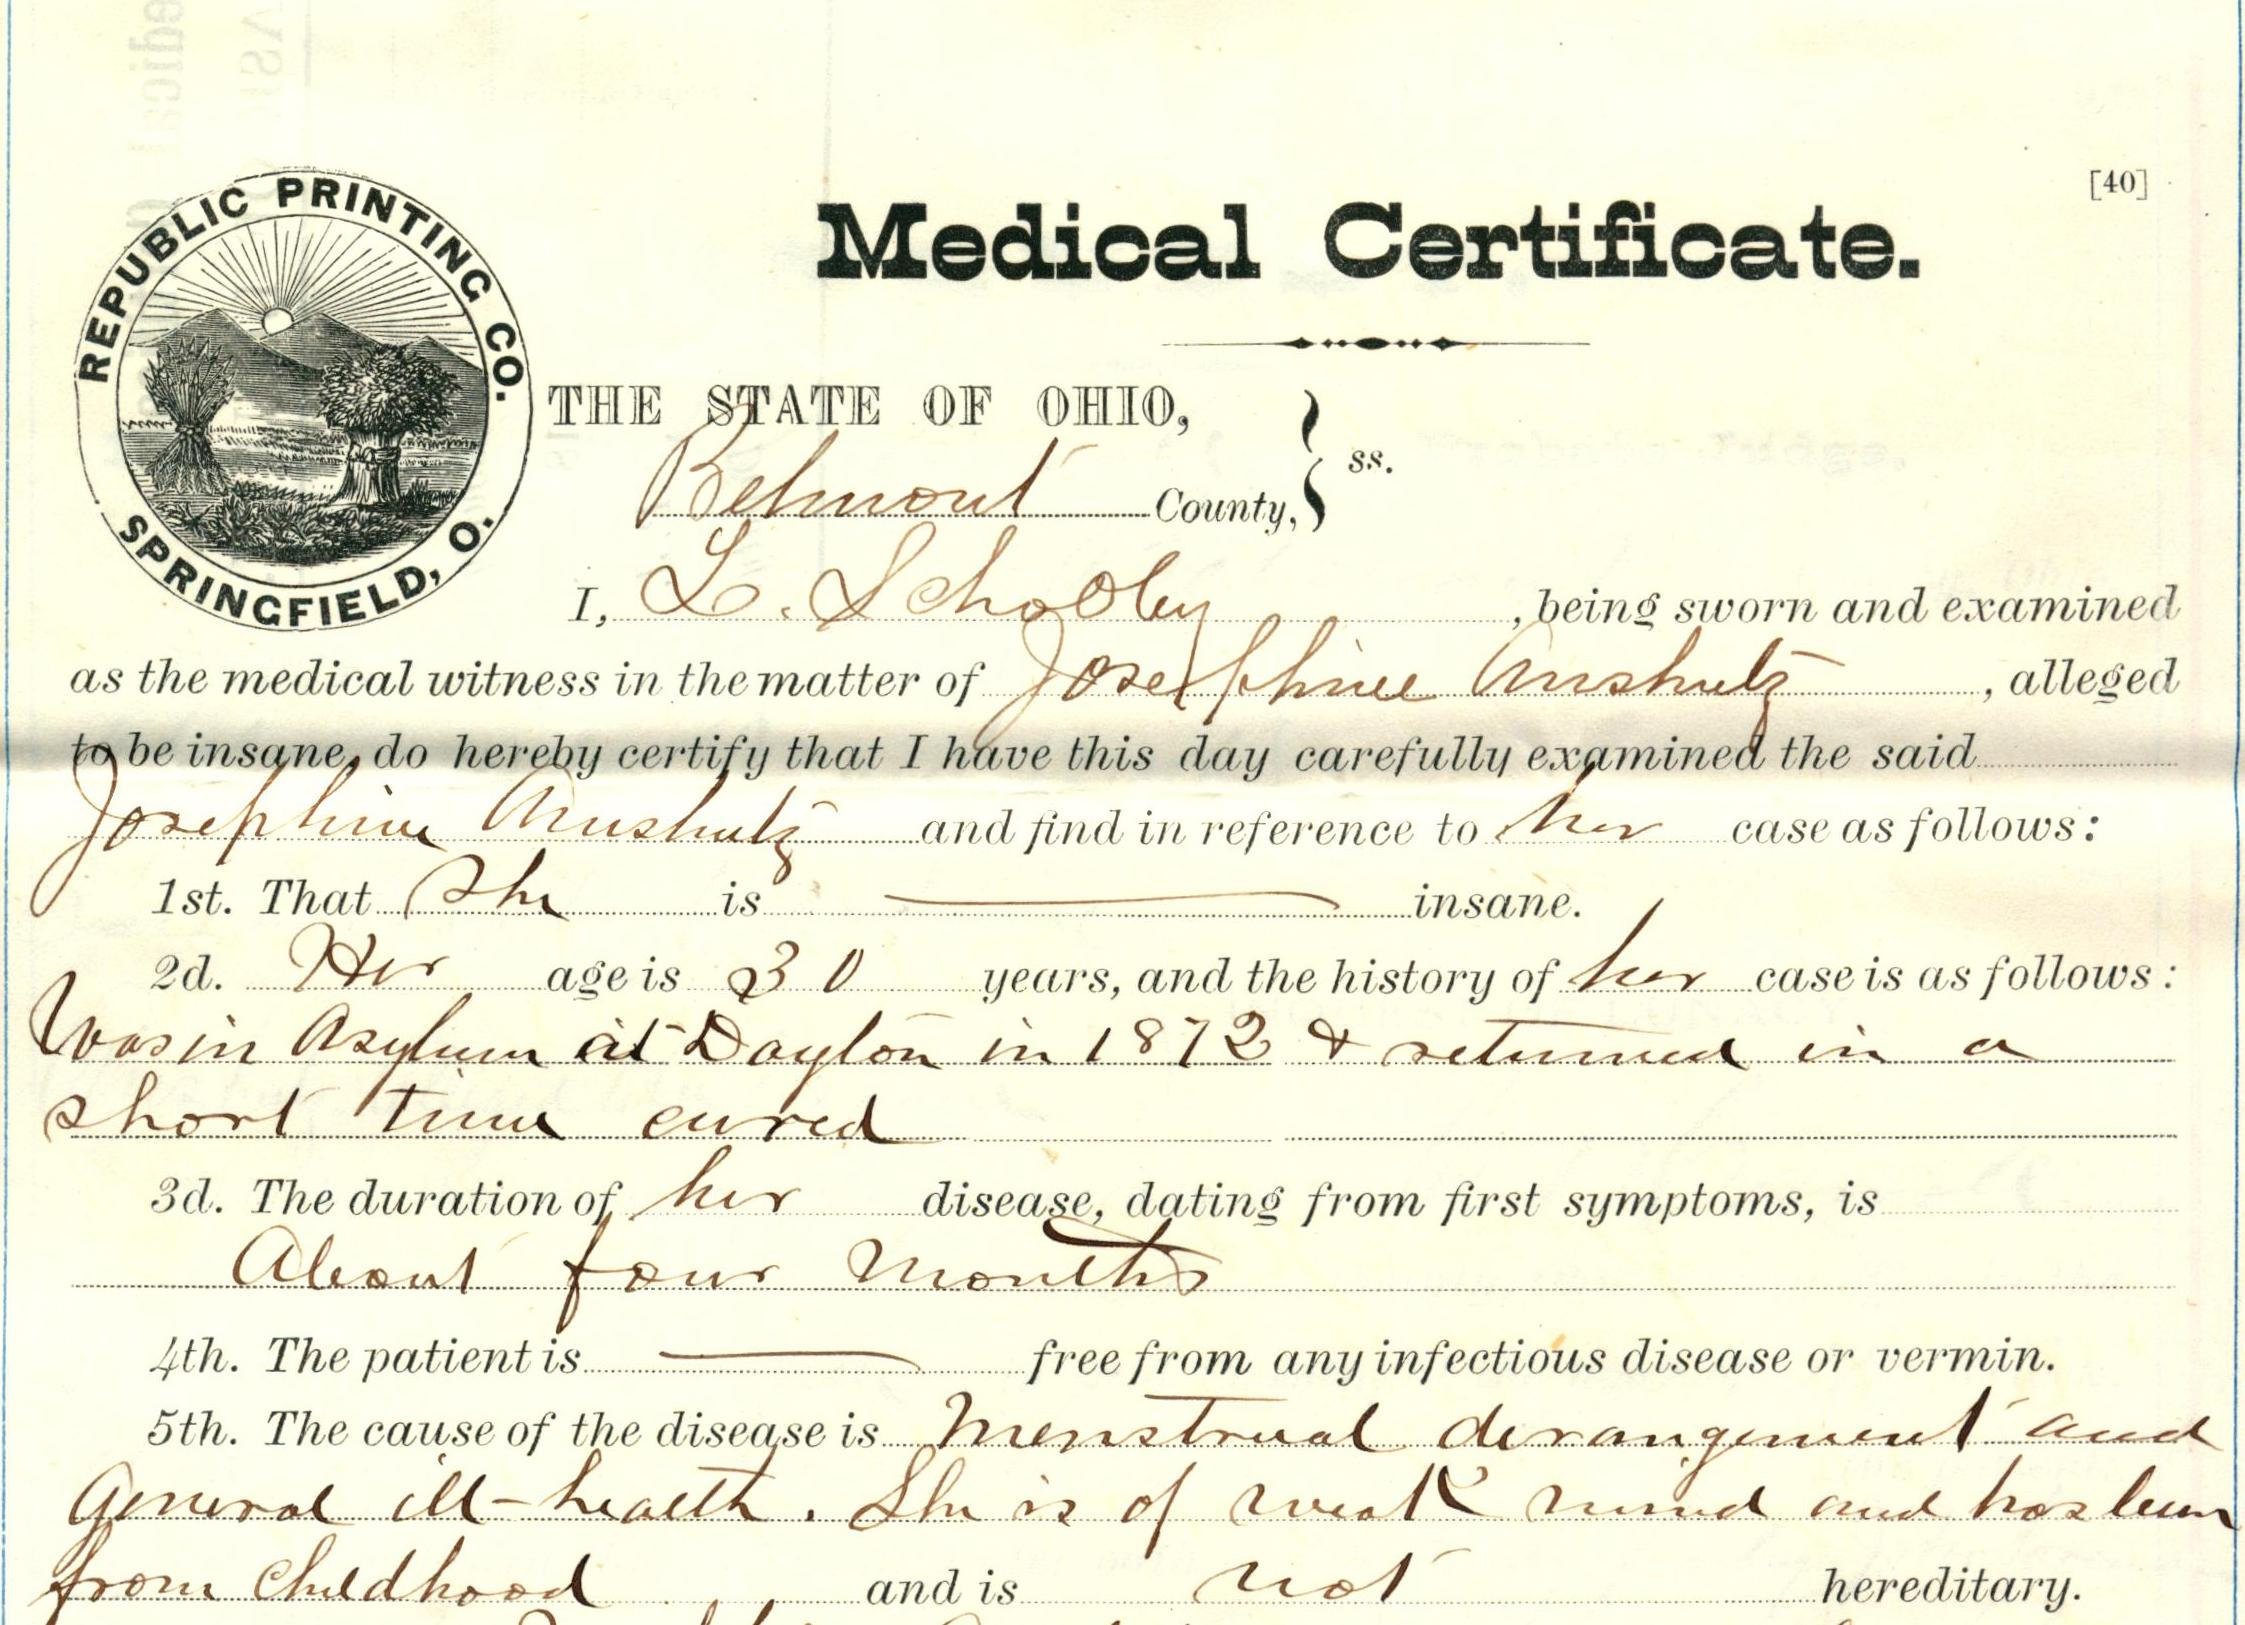 [40]
Medical Certificate.
REPUBLIC PRINTING CO.
SPRINGFIELD, O.
THE STATE OF OHIO,
Belmont County, } ss.
I, L. Schooley, being sworn and examined
as the medical witness in the matter of Josephine Anshutz, alleged
to be insane, do hereby certify that I have this day carefully examined the said
Josephine Anshutz and find in reference to her case as follows:
1st. That She is ——— insane.
2d. Her age is 30 years, and the history of her case is as follows:
Was in Asylum at Dayton in 1872 & returned in a
short time cured
3d. The duration of her disease, dating from first symptoms, is
About four Months
4th. The patient is ——— free from any infectious disease or vermin.
5th. The cause of the disease is Menstrual derangement and
General ill-health. She is of weak mind and has been
from childhood and is not hereditary.